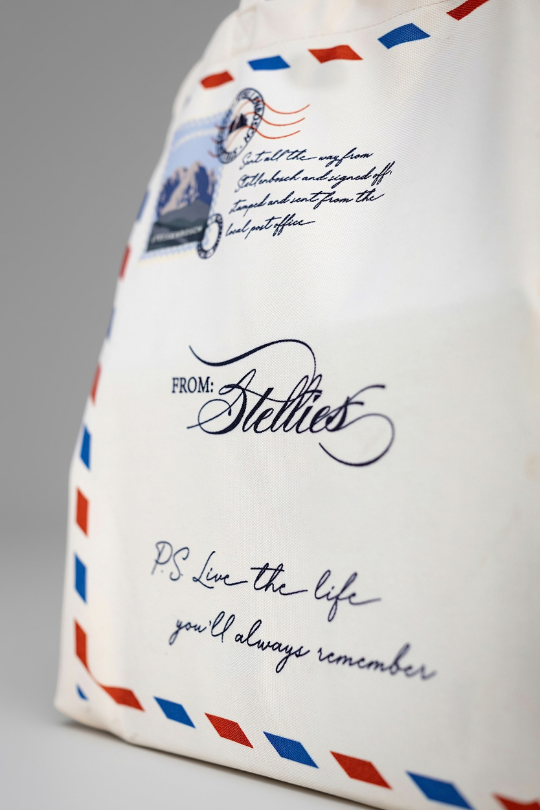 Sent all the way from
Stellenbosch and signed off,
stamped and sent from the
local post office
FROM: Stellies
P.S. Live the life
you'll always remember